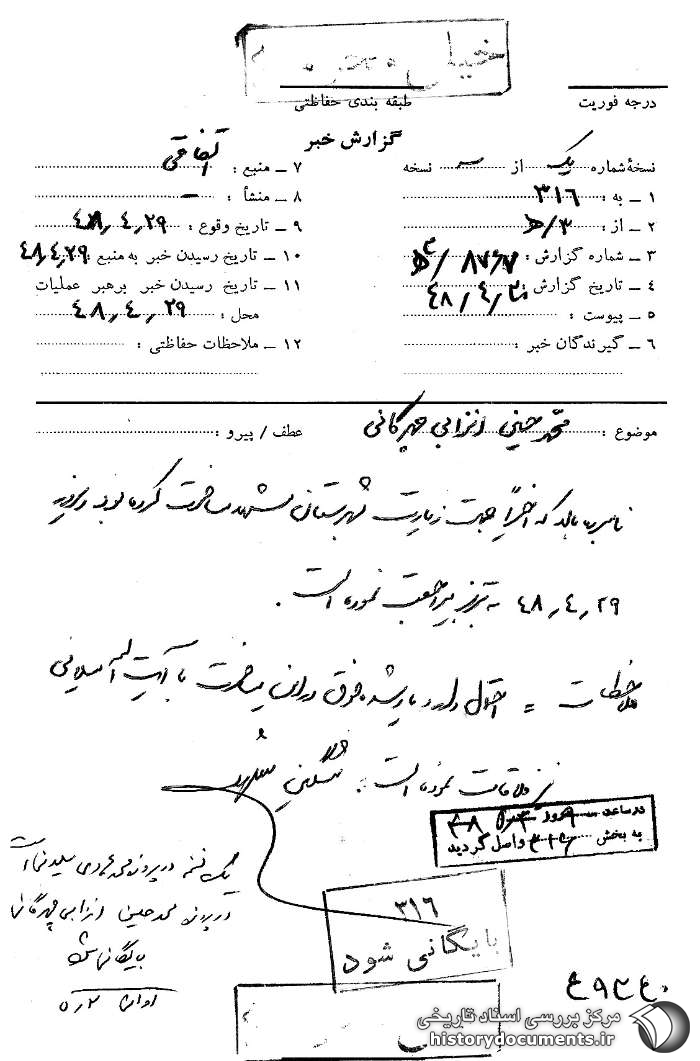 خیلی محرمانه
درجه فوریت
طبقه بندی حفاظتی
گزارش خبر
نسخهٔ شماره یک از سه نسخه
۱ ــ به : ۳۱۶
۲ ــ از : ۳/ه‍
۳ ــ شماره گزارش :
۴ ــ تاریخ گزارش : ۴۸٫۴٫۳۰
۵ ــ پیوست :
۶ ــ گیرندگان خبر :
۷ ــ منبع : اتفاقی
۸ ــ منشأ : ــ
۹ ــ تاریخ وقوع : ۴۸٫۴٫۲۹
۱۰ ــ تاریخ رسیدن خبر به منبع : ۴۸٫۴٫۲۹
۱۱ ــ تاریخ رسیدن خبر برهبر عملیات
محل : ۴۸٫۴٫۲۹
۱۲ ــ ملاحظات حفاظتی :
موضوع : محمدحسین انزابی چهرگانی
عطف / پیرو :
نامبرده بالا که اخیراً جهت زیارت بشهرستان مشهد مسافرت کرده بود در روز
۴۸٫۴٫۲۹ به تبریز مراجعت نموده است .
ملاحظات = احتمال دارد یاد شده فوق در این مسافرت با آیت اله میلانی
نیز ملاقات نموده است .
در ساعت روز
به بخش ۳۱۶ واصل گردید
یک نسخه در پرونده محمدهادی میلانی است
در پرونده محمدحسین انزابی چهرگانی
بایگانی شود
۳۱۶
بایگانی شود
مرکز بررسی اسناد تاریخی
historydocuments.ir